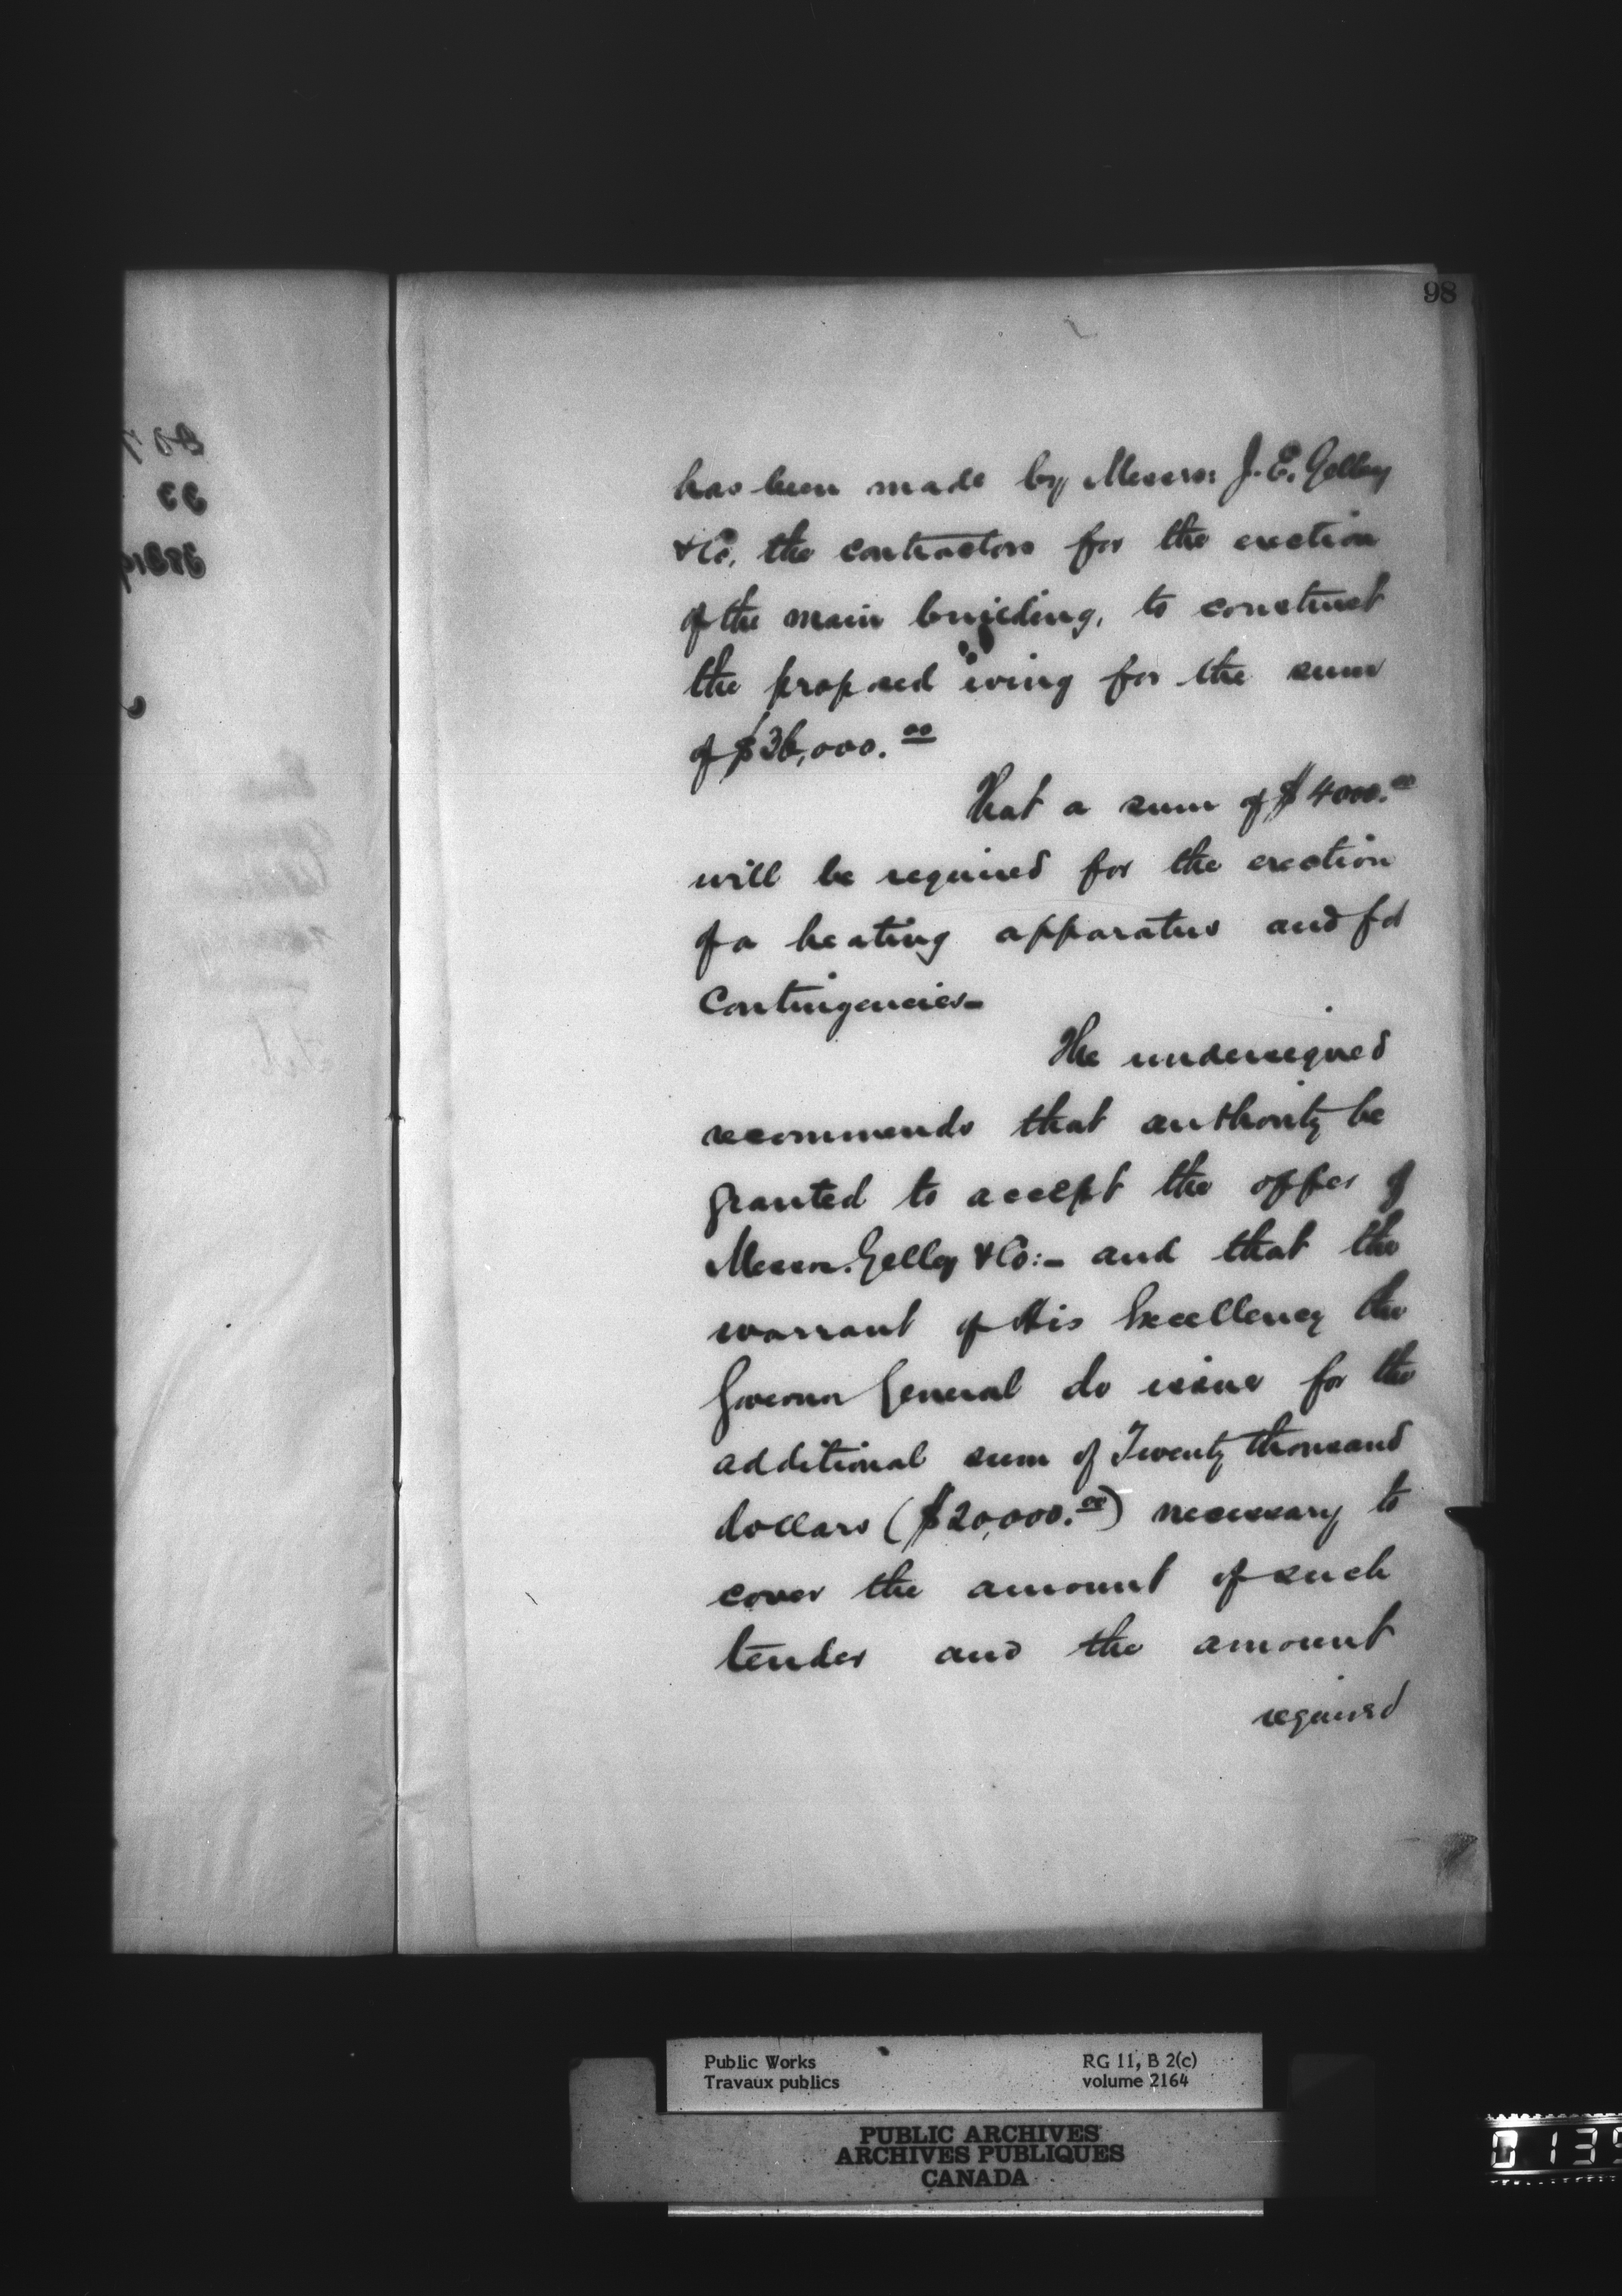 98
has been made by Messrs: J. E. Gelley
& Co. the contractors for the erection
of the main building, to construct
the proposed wing for the sum
of $36,000.00
That a sum of $4000.00
will be required for the erection
of a heating apparatus and for
Contingencies-
The undersigned
recommends that authority be
granted to accept the offer of
Messrs. Gelley & Co:- and that the
warrant of His Excellency the
Governor General do issue for the
additional sum of Twenty thousand
dollars ($20,000.00) necessary to
cover the amount of such
tender and the amount
required
Public Works
Travaux publics
RG 11, B 2(c)
volume 2164
PUBLIC ARCHIVES
ARCHIVES PUBLIQUES
CANADA